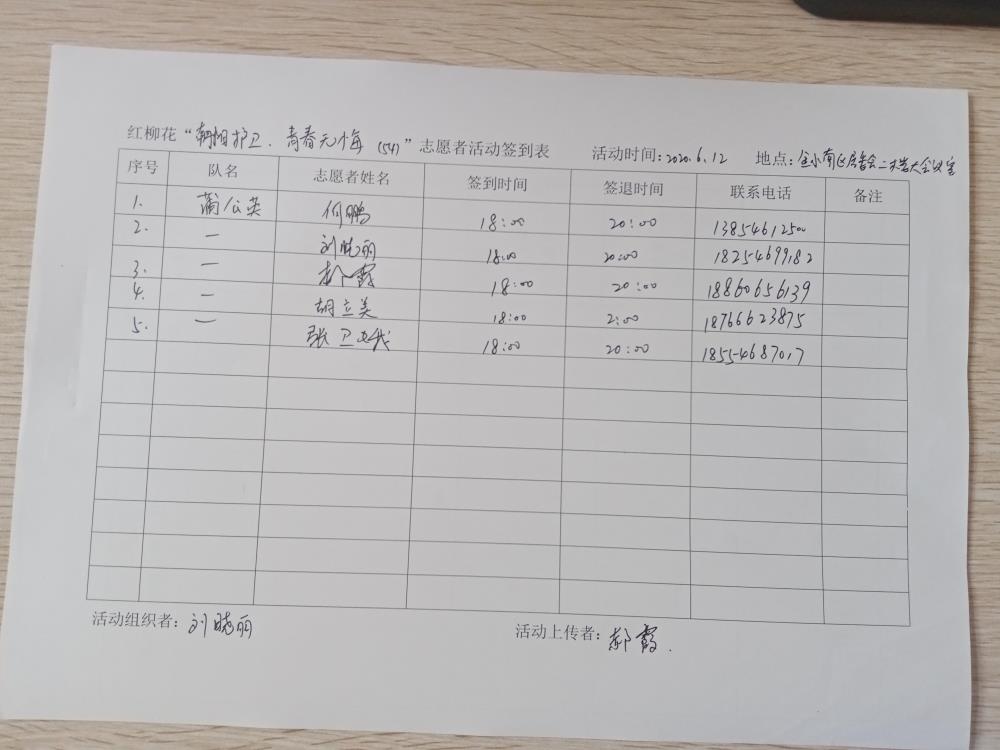 红柳花“朝阳护卫．青春无悔（54）”志愿者活动签到表 活动时间：2020.6.12 地点：金水南区居委会二楼大会议室
序号 队名 志愿者姓名 签到时间 签退时间 联系电话 备注
1. 蒲公英 何鹏 18:00 20:00 13854612500
2. 一 刘晓丽 18:00 20:00 18254699182
3. 一 霞 18:00 20:00 18860656139
4. 一 胡立美 18:00 2:00 18766623875
5. 一 张卫 18:00 20:00 18554687017
活动组织者：刘晓丽
活动上传者：郝霞.